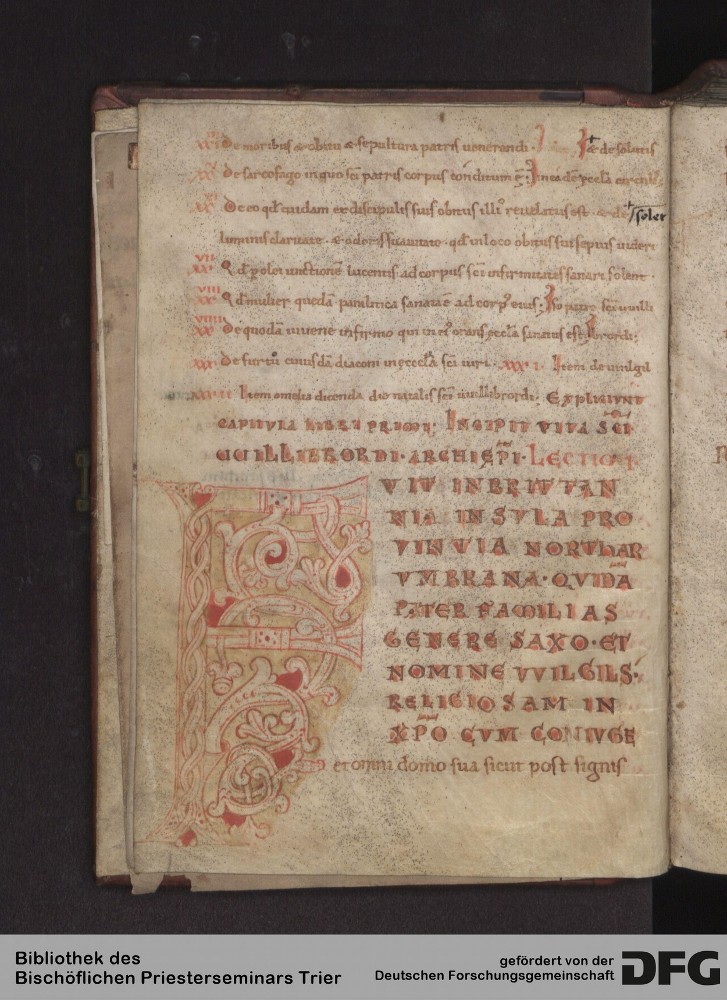 De moribus & obitu & sepultura patris uenerandi.
De sarcofago in quo sci patris corpus conditum
De eo qd quidam ex discipulis suis obitus illi reuelatus est
luminis claritate. & odoris suauitate. qd in loco obitus sui sepius uidert
Qd de olei unctione lucernis. ad corpus sci infirmitates sanari solent.
Qd mulier quedā paralitica sanata ē ad corp eius;
De quodā iuuene infirmo qui
De furtu cuiusdā diaconi in eccla sci uiri. XXXI. Item de uuilgil
XXXII Item omelia dicenda die natalis sci uuillibrordi. EXPLICIUNT
CAPITULA LIBRI PRIMI; INCIPIT VITA SCI
UUILLIBRORDI. ARCHIEPI. LECTIO I.
F VIT IN BRITTAN
NIA INSVLA PRO
VINTIA NORTHAN
VMBRANA. QVIDĀ
PATER FAMILIAS
GENERE SAXO. ET
NOMINE VVILGILS.
RELIGIOSAM IN
XPO CVM CONIVGE
et omni domo sua sicut post signis
Bibliothek des
Bischöflichen Priesterseminars Trier
gefördert von der
Deutschen Forschungsgemeinschaft
DFG